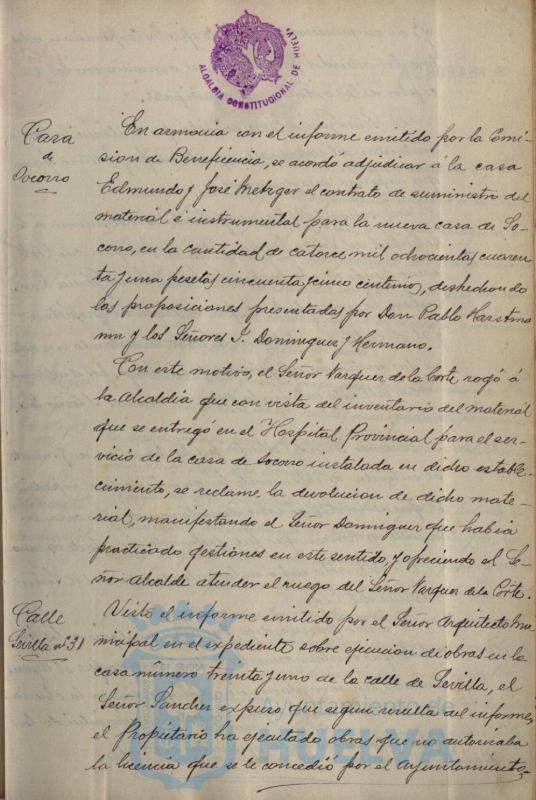 ALCALDIA CONSTITUCIONAL DE HUELVA
Casa
de
Socorro
En armonia con el informe emitido por la Comi-
sion de Beneficencia, se acordó adjudicar á la casa
Edmundo y José Metzger el contrato de suministro del
material é instrumental para la nueva casa de So-
corro, en la cantidad de catorce mil ochocientas cuaren-
ta y una pesetas cincuenta y cinco centimos, deshechando
las proposiciones presentadas por Don Pablo Hartma
nn y los Señores J. Dominguez y Hermano.
Con este motivo, el Señor Vazquez de la Corte rogó á
la Alcaldia que con vista del inventario del material
que se entregó en el Hospital Provincial para el ser-
vicio de la casa de Socorro instalada en dicho estable-
cimiento, se reclame la devolucion de dicho mate-
rial, manifestando el Señor Dominguez que habia
practicado gestiones en este sentido, y ofreciendo el Se-
ñor Alcalde atender el ruego del Señor Vazquez de la Corte.
Calle
Sevilla nº 31
Visto el informe emitido por el Señor Arquitecto mu-
nicipal en el expediente sobre ejecucion de obras en la
casa numero treinta y uno de la calle de Sevilla, el
Señor expuso que segun resulta del informe,
el Propietario ha ejecutado obras que no autorizaba
la licencia que se le concedió por el Ayuntamiento,
Ayuntamiento de
HUELVA